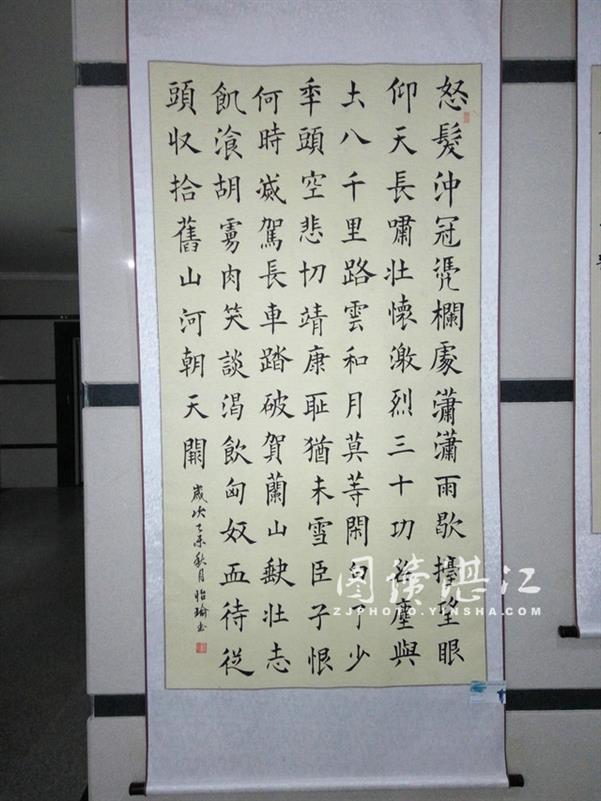 怒髮沖冠凴欄處瀟瀟雨歇擡望眼
仰天長嘯壯懷激烈三十功名塵與
土八千里路雲和月莫等閑白了少
年頭空悲切靖康恥猶未雪臣子恨
何時滅駕長車踏破賀蘭山缺壯志
飢湌胡虜肉笑談渴飲匈奴血待從
頭収拾舊山河朝天闕
歲次乙未秋月怡瑜書
图读湛江
ZJPHOTO.YINSHA.COM